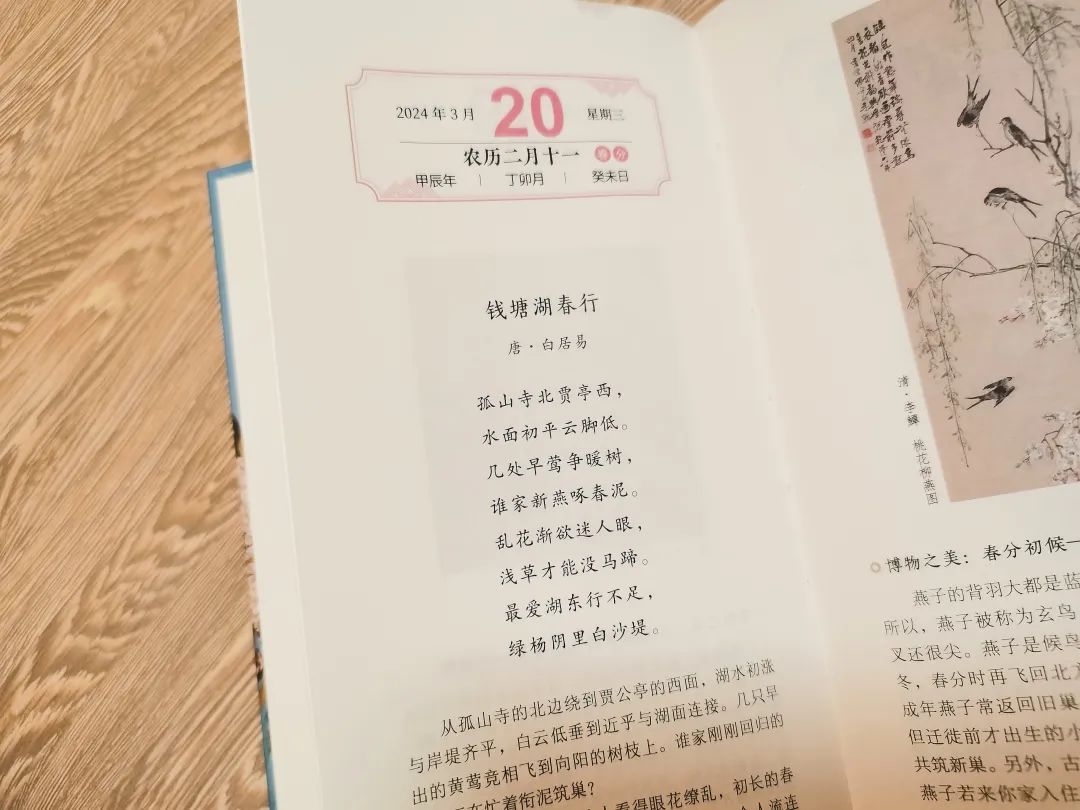 2024 年 3 月 20 星期三
农历二月十一 春分
甲辰年 | 丁卯月 | 癸未日
钱塘湖春行
唐·白居易
孤山寺北贾亭西，
水面初平云脚低。
几处早莺争暖树，
谁家新燕啄春泥。
乱花渐欲迷人眼，
浅草才能没马蹄。
最爱湖东行不足，
绿杨阴里白沙堤。
从孤山寺的北边绕到贾公亭的西面，湖水初涨
与岸堤齐平，白云低垂到近乎与湖面连接。几只早
出的黄莺竞相飞到向阳的树枝上。谁家刚刚回归的
在忙着衔泥筑巢？
人看得眼花缭乱，初长的春
清·李鱓 桃花柳燕图
博物之美：春分初候一
燕子的背羽大都是蓝
所以，燕子被称为玄鸟
叉还很尖。燕子是候鸟
冬，春分时再飞回北方
成年燕子常返回旧巢
但迁徙前才出生的小
共筑新巢。另外，古
燕子若来你家入住